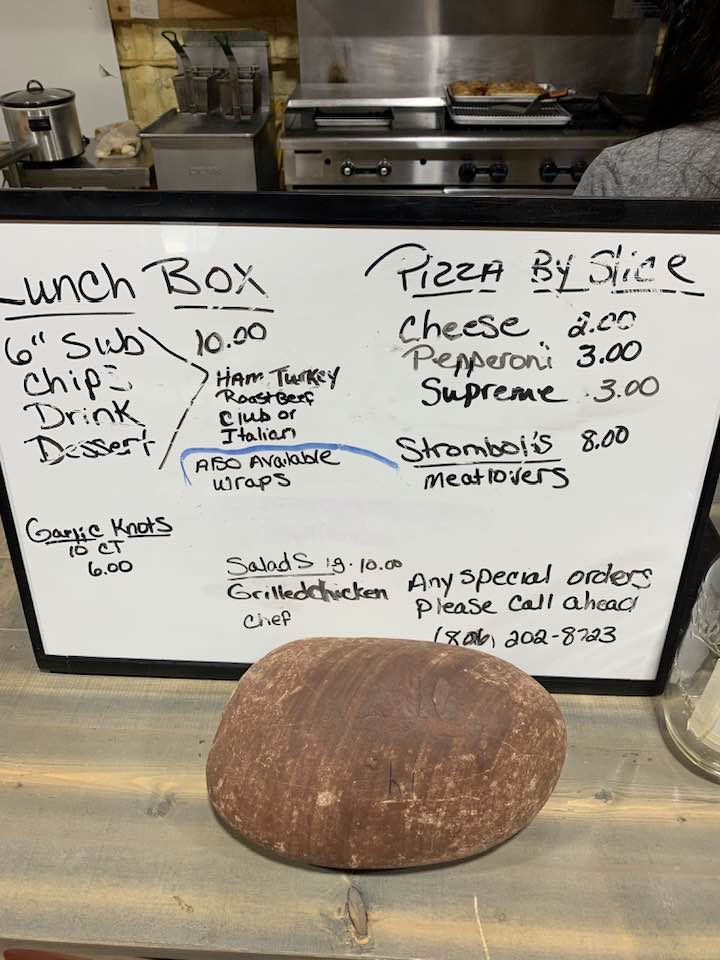 Lunch Box
6" Sub
Chips
Drink
Dessert
10.00
Ham Turkey
Roast Beef
Club or
Italian
Also Available
Wraps
Garlic Knots
10 CT
6.00
Salads 10.00
Grilled Chicken
Chef
Pizza By Slice
Cheese 2.00
Pepperoni 3.00
Supreme 3.00
Stromboli's 8.00
Meatlovers
Any special orders
please call ahead
(806) 202-8723